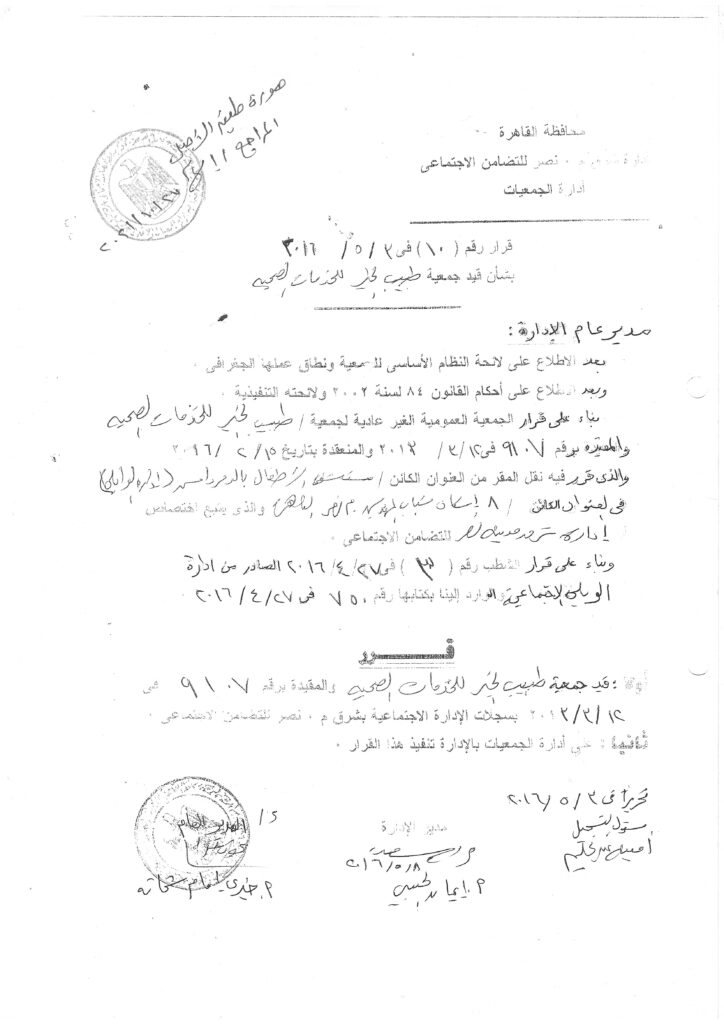 صورة طبق الأصل
المراجع
محافظة القاهرة
إدارة شرق م . نصر للتضامن الاجتماعى
أدارة الجمعيات
قرار رقم ( ١٠ ) فى ٣ / ٥ / ٢٠١٦
بشأن قيد جمعية طبيب الخير للخدمات الصحيه
مدير عام الإدارة :
بعد الاطلاع على لائحة النظام الأساسى للجمعية ونطاق عملها الجغرافى .
وبعد الاطلاع على أحكام القانون ٨٤ لسنة ٢٠٠٢ ولائحته التنفيذية .
بناء على قرار الجمعية العمومية الغير عادية لجمعية / طبيب الخير للخدمات الصحيه
والمقيدة برقم ٩١٠٧ فى ١٢ / ٣ / ٢٠١٣ والمنعقدة بتاريخ ١٥ / ٢ / ٢٠١٦
والذى قرر فيه نقل المقر من العنوان الكائن / مستشفى الأطفال بالدمرداش
فى العنوان الكائن / ٨ إسكان شباب المهندسين م نصر القاهرة والذى يتبع اختصاص
إدارة شرق مدينة نصر للتضامن الاجتماعى .
وبناء على قرار الشطب رقم ( ٣ ) فى ٢٧ / ٤ / ٢٠١٦ الصادر من ادارة
الوايلى الإجتماعية والوارد إلينا بكتابها رقم ٧٥٠ فى ٢٧ / ٤ / ٢٠١٦ .
قــــرر
أولا : قيد جمعية طبيب الخير للخدمات الصحيه والمقيدة برقم ٩١٠٧ فى
١٢ / ٣ / ٢٠١٣ بسجلات الإدارة الاجتماعية بشرق م . نصر للتضامن الاجتماعى .
ثانيا : على أدارة الجمعيات بالإدارة تنفيذ هذا القرار .
تحريرا فى ٣ / ٥ / ٢٠١٦
مسئول التسجيل
مدير الإدارة
المدير العام
٢٠١٦/٥/٨